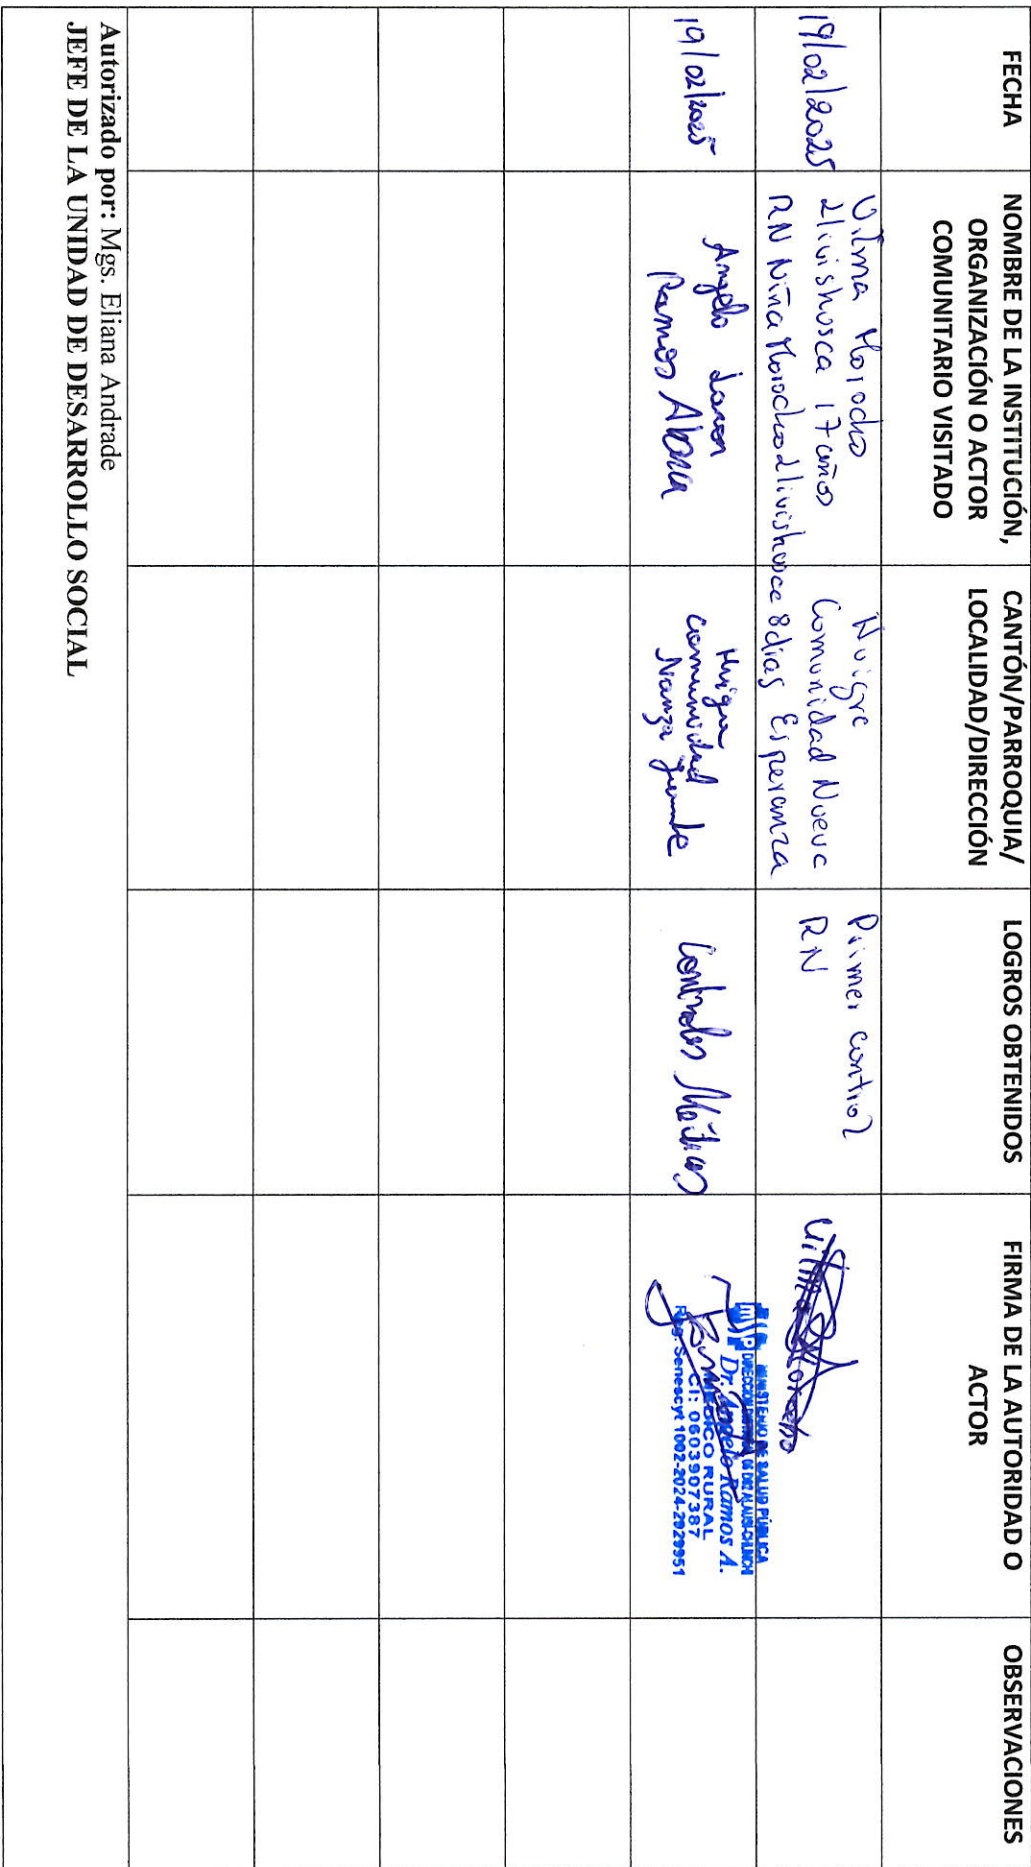 FECHA
NOMBRE DE LA INSTITUCIÓN,
ORGANIZACIÓN O ACTOR
COMUNITARIO VISITADO
CANTÓN/PARROQUIA/
LOCALIDAD/DIRECCIÓN
LOGROS OBTENIDOS
FIRMA DE LA AUTORIDAD O
ACTOR
OBSERVACIONES
19/02/2025
Vilma Morocho
Llivishusca 17 años
RN Niña Morocho Llivishusca 8 dias
Huigra
Comunidad Nueva
Esperanza
Primer control
RN
Vilma Morocho
19/02/2025
Angelo
Ramos
Huigra
comunidad
Controles Médicos
MINISTERIO DE SALUD PÚBLICA
MSP DIRECCIÓN DISTRITAL
Dr. Angelo Ramos A.
MÉDICO RURAL
CI: 0603907387
Reg. Senescyt 1002-2024-2929951
Autorizado por: Mgs. Eliana Andrade
JEFE DE LA UNIDAD DE DESARROLLO SOCIAL